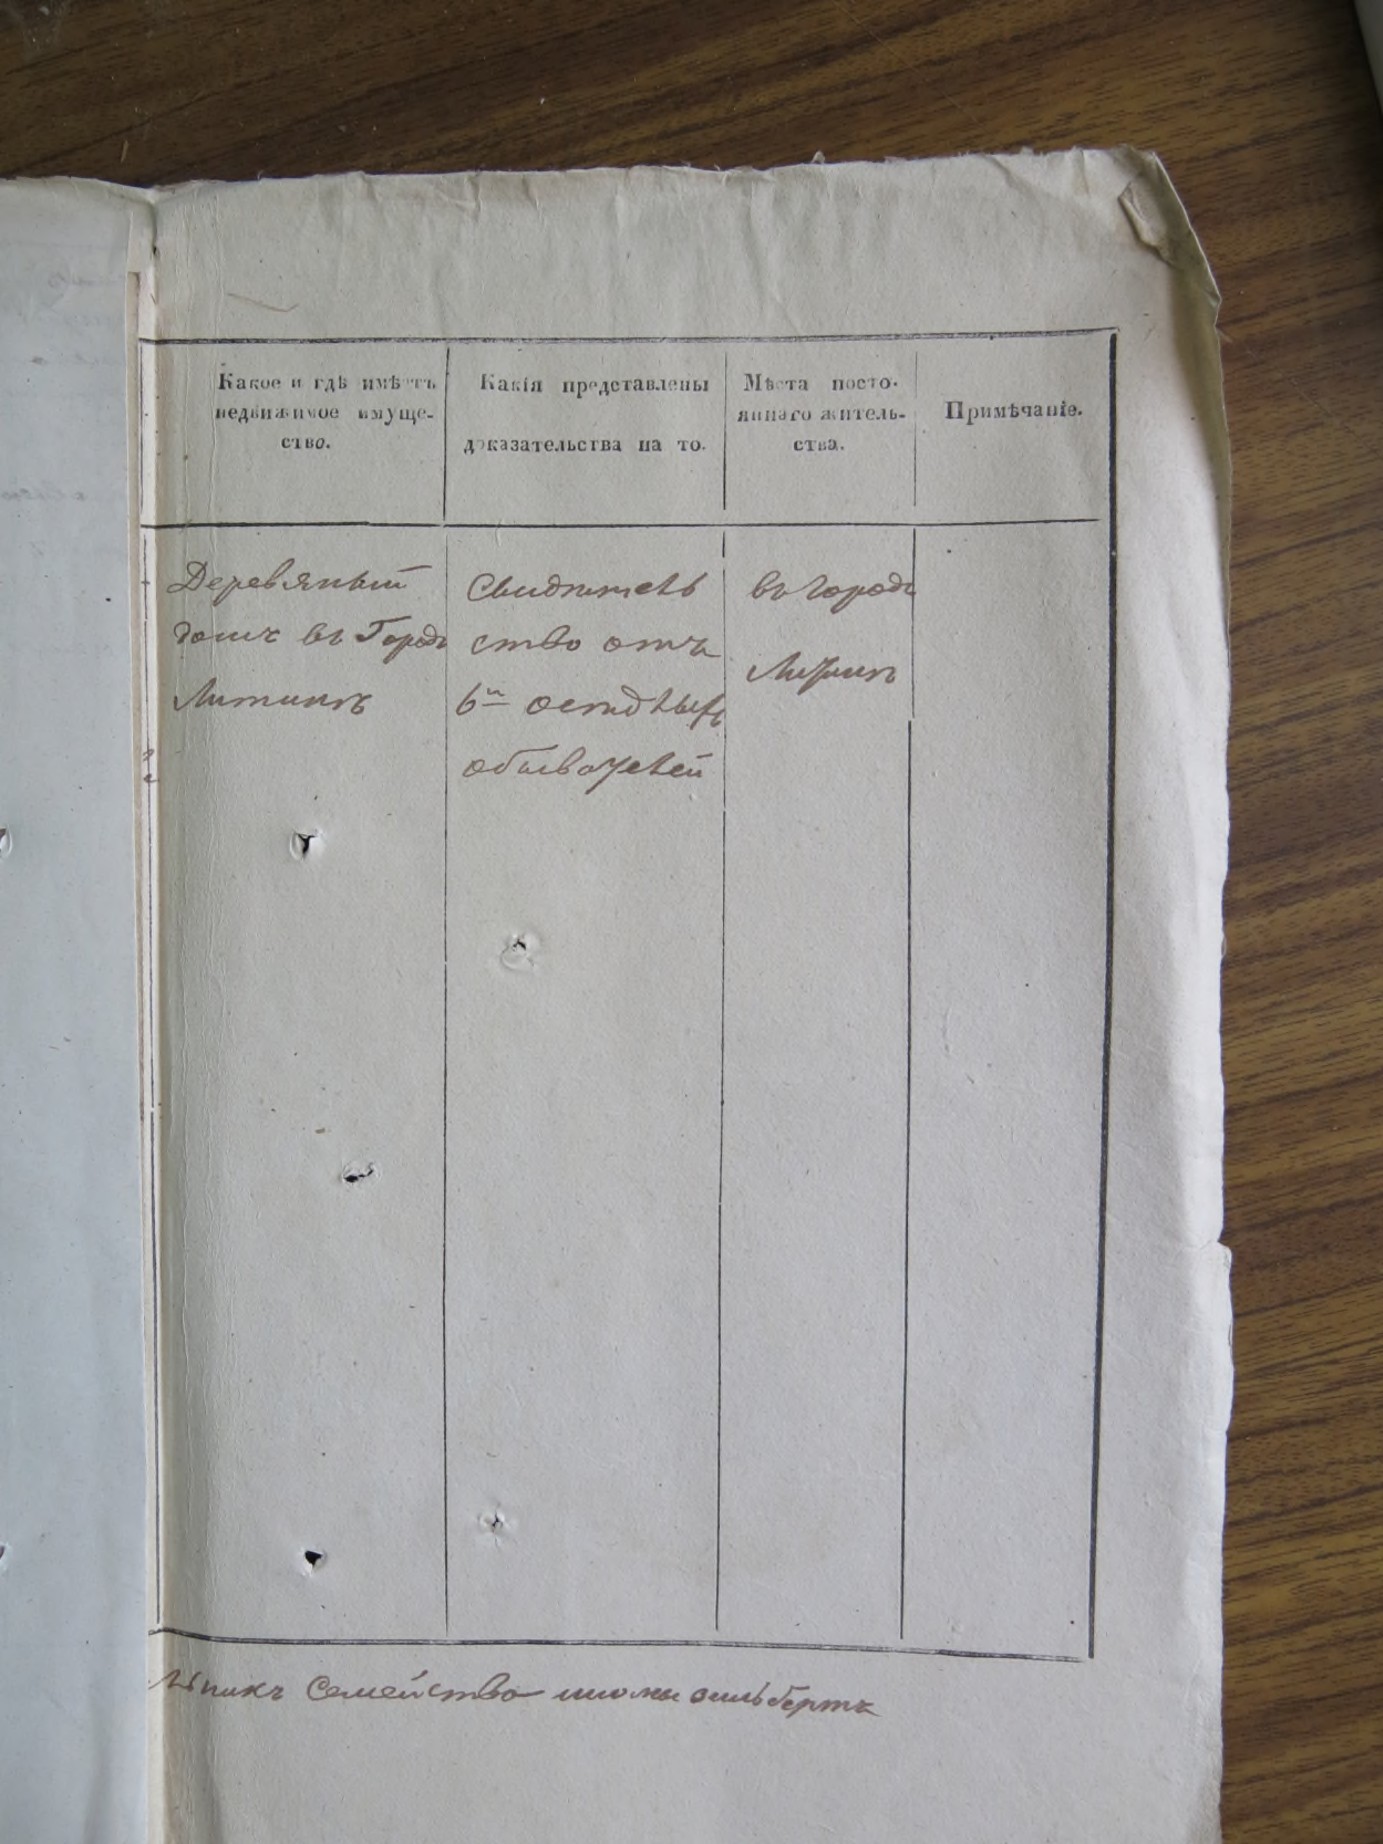 Какое и гдѣ имѣетъ
недвижимое имуще-
ство.
Какія представлены
доказательства на то.
Мѣста посто-
яннаго житель-
ства.
Примѣчаніе.
Деревяный
домъ въ Городѣ
Литинѣ
Свидѣтель
ство отъ
6ти осѣдлыхъ
обывателей
въ Городѣ
Литинѣ
Семейство